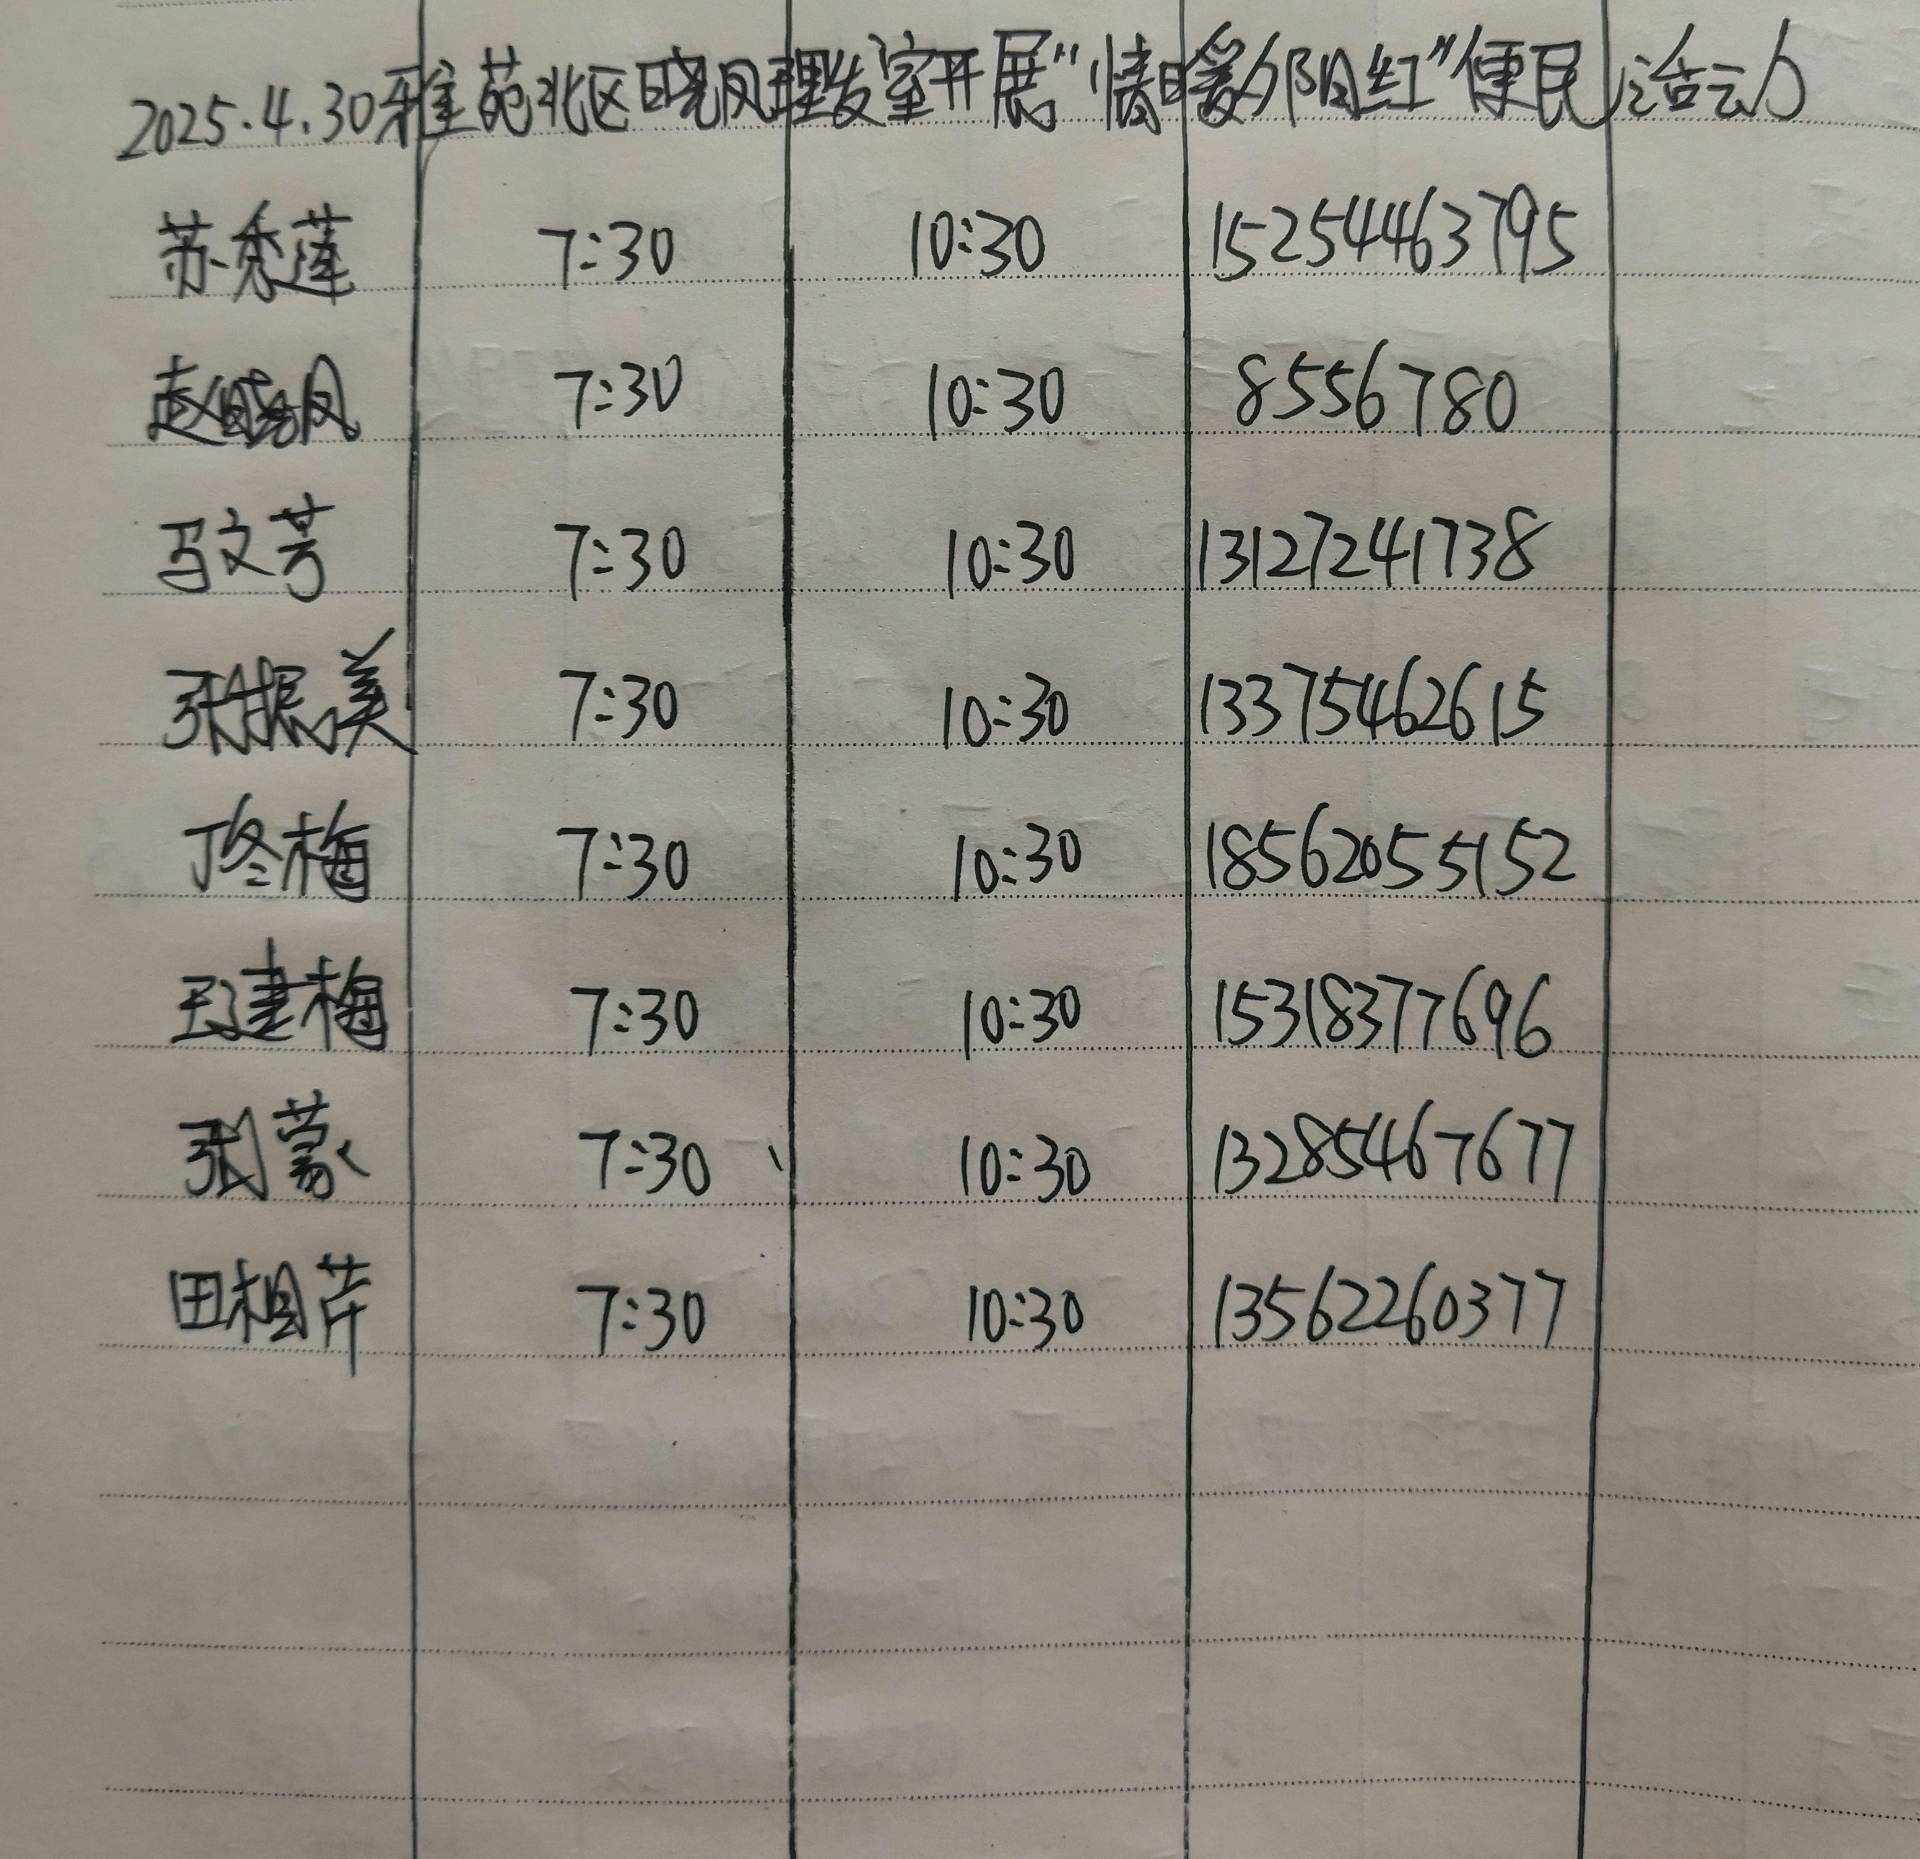 2025.4.30雅苑北区晓凤理发室开展“情暖夕阳红”便民活动
苏秀莲 7:30 10:30 15254463795
赵晓凤 7:30 10:30 8556780
马文芳 7:30 10:30 13127241738
张振美 7:30 10:30 13375462615
丁冬梅 7:30 10:30 18562055152
王建梅 7:30 10:30 15318377696
张蒙 7:30 10:30 13285467677
田相芹 7:30 10:30 13562260377